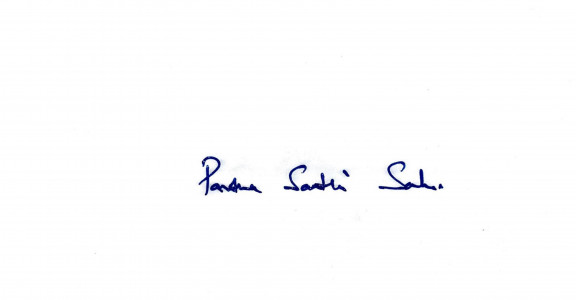 Partha Sarthi Sah.